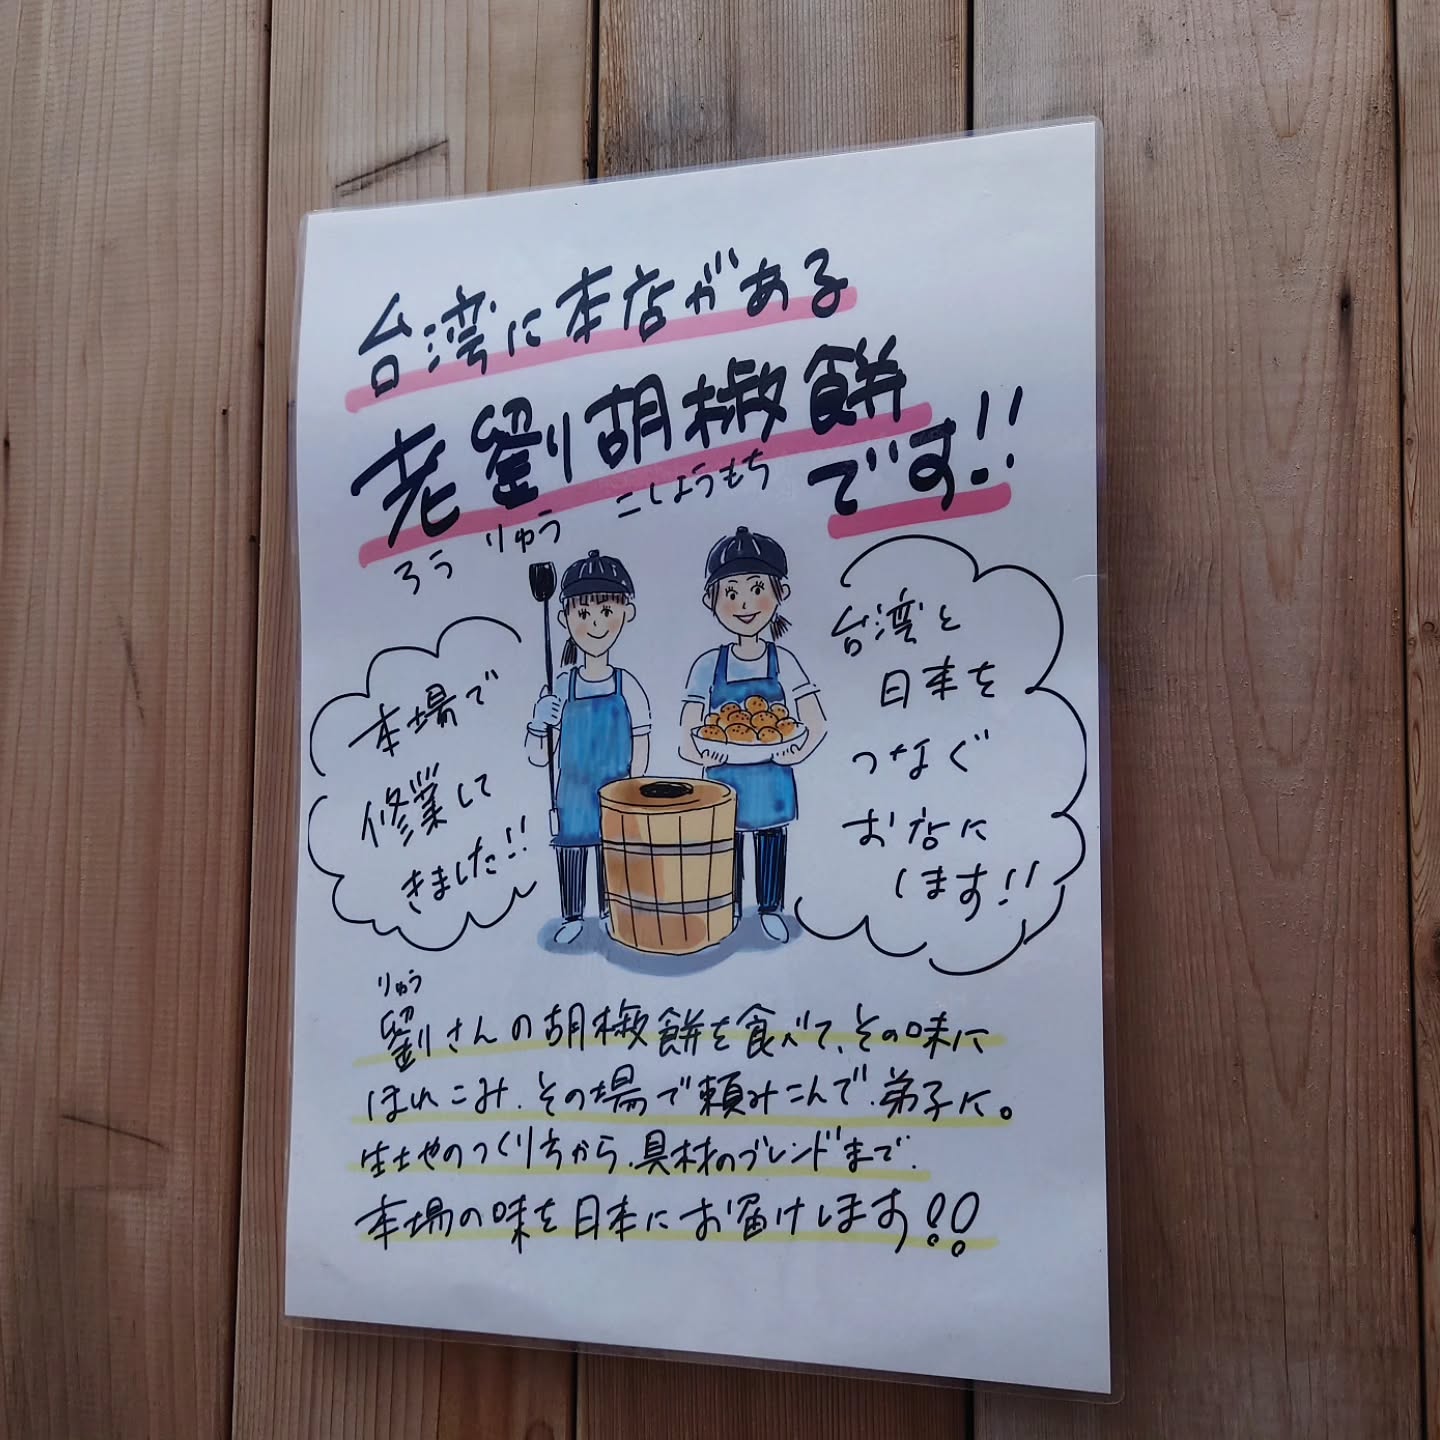 台湾に本店がある
老劉胡椒餅
ろう りゅう こしょうもち
です!!
本場で
修業して
きました!!
台湾と
日本を
つなぐ
お店に
します!!
りゅう
劉さんの胡椒餅を食べて、その味に
ほれこみ、その場で頼みこんで、弟子に。
生地のつくり方から、具材のブレンドまで、
本場の味を日本にお届けします!!